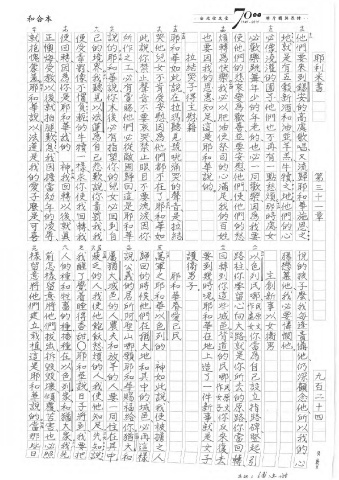 和合本
7000
耶利米書 第三十一章 九百二十四頁
他們要來到錫安的高處歌唱又流歸耶和華施恩之
地就是有五穀新酒和油並羊羔牛犢之地他們的心
必像澆灌的園子他們也不再有一點愁煩那時處女
必歡樂跳舞年少的年老的也必一同歡樂因為我要
使他們的悲哀變為歡喜並要安慰他們使他們的愁
煩轉為快樂我必以肥油使祭司的心滿足我的百姓
也要因我的恩惠知足這是耶和華說的
拉結哭子得主慰藉
耶和華如此說在拉瑪聽見號咷痛哭的聲音是拉結
哭他兒女不肯受安慰因為他們都不在了耶和華如
此說你禁止聲音不要哀哭禁止眼目不要流淚因你
所作之工必有賞賜他們必從敵國歸回這是耶和華
說的耶和華說你末後必有指望你的兒女必回到自
己的境界我聽見以法蓮為自己悲歎說你責罰我我
便受責罰像不慣負軛的牛犢一樣求你使我回轉我
便回轉因為你是耶和華我的 神我回轉以後就真
正懊悔受教以後就拍腿歎息我因擔當幼年的凌辱
就抱愧蒙羞耶和華說以法蓮是我的愛子麼是可喜
說的孩子麼我每逢責備他仍深顧念他所以我的心
腸戀慕他我必要憐憫他
主創新事以女護男
以色列民哪你當為自己設立指路碑豎起引
路柱你要留心向大路就是你所去的原路你當回轉
回轉到你這些城邑背道的民哪你反來覆去
要到幾時呢耶和華在地上造了一件新事就是女子
護衛男子
耶和華眷愛己民
萬軍之耶和華以色列的 神如此說我使被擄之人
歸回的時候他們在猶大地和其中的城邑必再這樣
說公義的居所阿聖山哪願耶和華賜福給你猶大和
屬猶大城邑的人農夫和放羊的人要一同住在其中
疲乏的人我使他飽飫愁煩的人我使他知足先知說
我醒了覺著睡得香甜耶和華說日子將到我要把
人的種和牲畜的種播種在以色列家和猶大家我先
前怎樣留意將他們拔出拆毀毀壞傾覆苦害也必照
樣留意將他們建立栽植這是耶和華說的當那些日